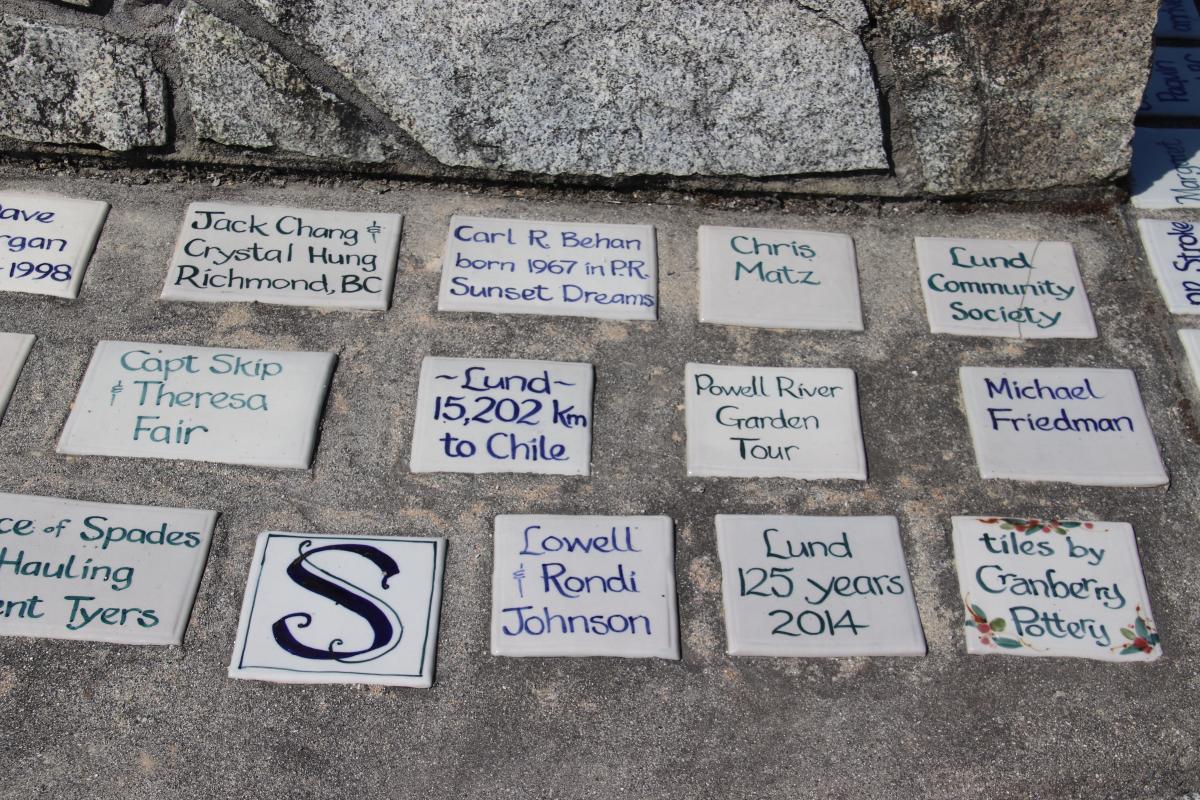 1998
Jack Chang &
Crystal Hung
Richmond, BC
Carl R. Behan
born 1967 in P.R.
Sunset Dreams
Chris
Matz
Lund
Community
Society
Stroke
Capt Skip
& Theresa
Fair
~Lund~
15,202 Km
to Chile
Powell River
Garden
Tour
Michael
Friedman
of Spades
Hauling
Tyers
S
Lowell
& Rondi
Johnson
Lund
125 years
2014
tiles by
Cranberry
Pottery